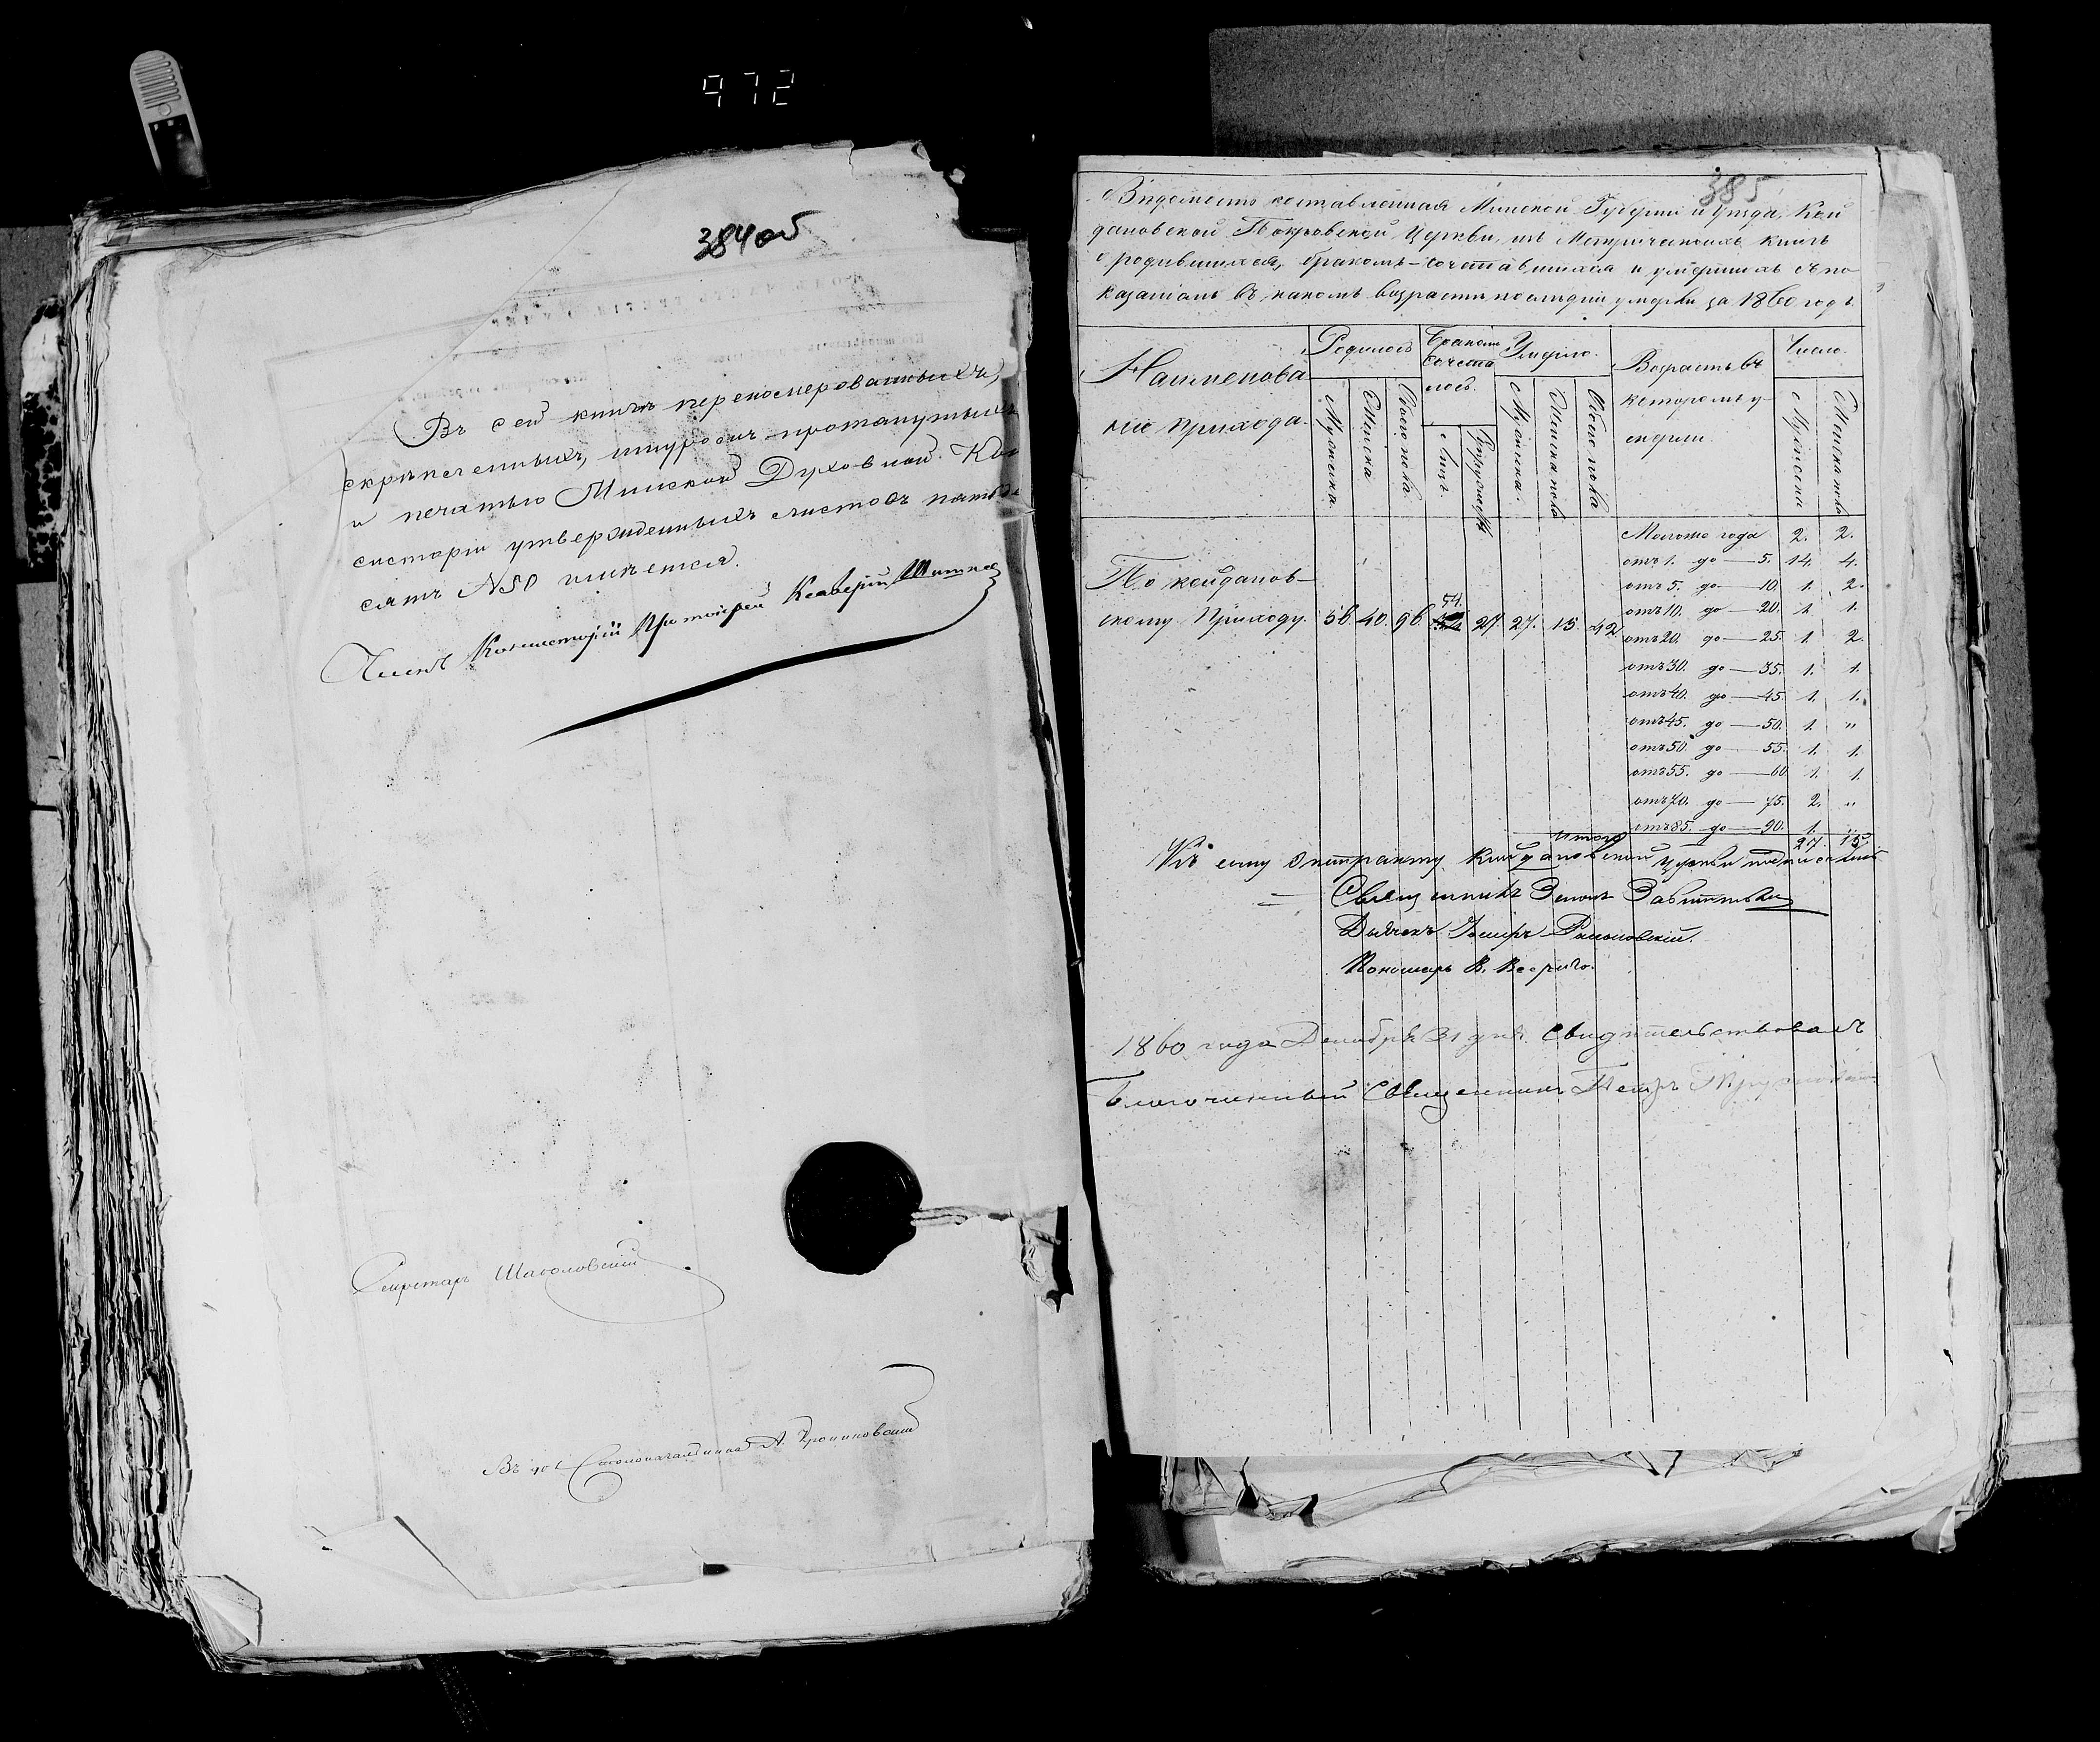 972
384об
Въ сей книгѣ перенумерованныхъ,
скрѣпленныхъ, шнуромъ протянутыхъ
и печатью Минской Духовной Кон
систоріи утвержденныхъ листовъ пятьде
сятъ №50 имѣется.
Членъ Консисторіи Протоіерей Ксаверій
Секретарь Шаболовскій
Въ дол. Столоначальника А.
385
Вѣдомость составленная Минской Губерніи и Уѣзда, Кой
дановской Покровской Церкви, изъ Метрическихъ книгъ
о родившихся, бракомъ-сочетавшихся и умершихъ съ по
казаніемъ въ какомъ возрастѣ послѣдніе умерли за 1860 годъ
Наименова
ніе прихода.
Родилось
Мужеска.
Женска
Обоего пола
Бракомъ
сочета
лось.
Лицъ.
Супружествъ
Умерло.
Мужеска.
Женска пола
Обоего пола
Возрастъ въ
которомъ у-
мерли.
Число.
Мужеска
Женска пола
По койданов-
скому Приходу 56 40. 96 54. 27 27. 15. 42
Моложе года 2. 2.
отъ 1. до — 5. 14. 4.
отъ 5. до — 10. 1. 2.
отъ 10. до — 20. 1. 1.
отъ 20. до — 25. 1. 2.
отъ 30. до — 35. 1. 1.
отъ 40. до — 45. 1. 1.
отъ 45. до — 50. 1. "
отъ 50. до — 55. 1. 1.
отъ 55. до — 60 1. 1.
отъ 70. до — 75. 2. "
отъ 85. до — 90. 1. "
Итого 27. 15
Къ сему Экстракту Койдановской церкви подписались
Священникъ
Дьячокъ Іосифъ
Пономарь В.
1860 года Декабря 31 дня. Свидѣтельствовалъ
Благочинный Священникъ Петръ